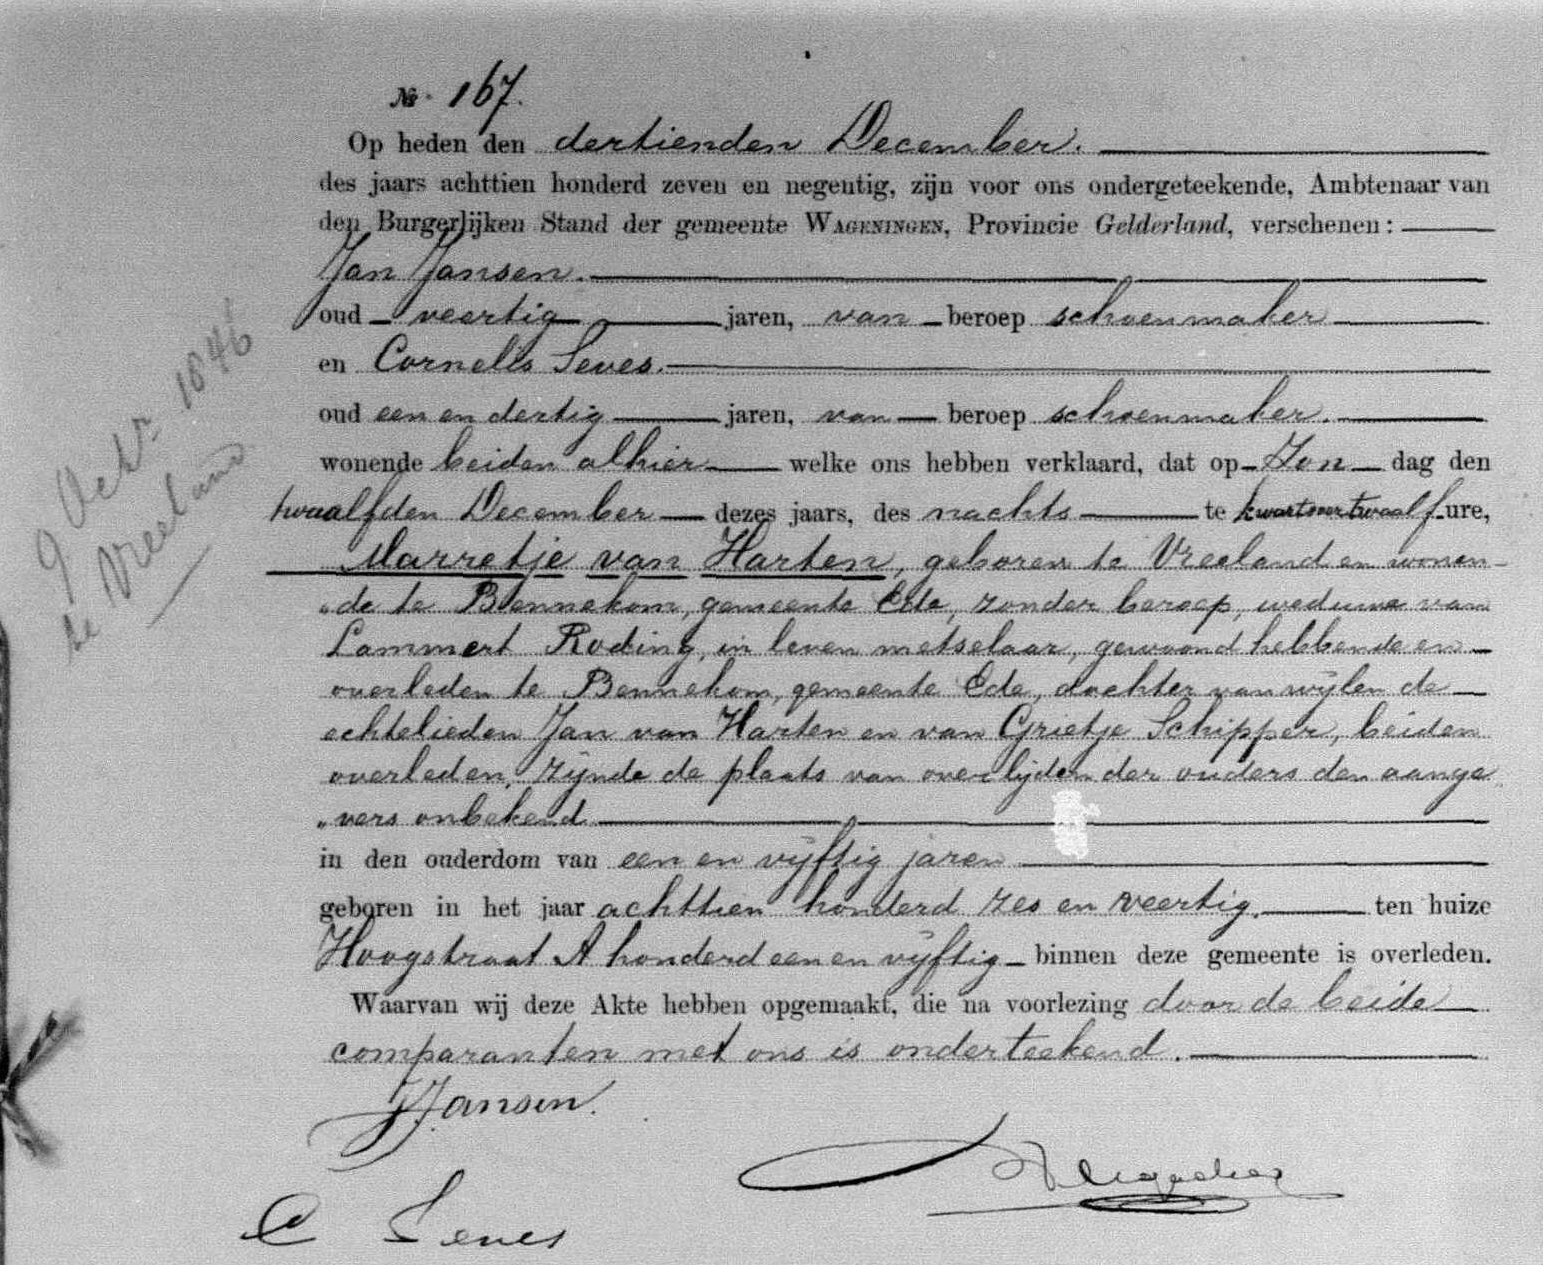 № 167.
Op heden den dertienden December.
des jaars achttien honderd zeven en negentig, zijn voor ons ondergeteekende, Ambtenaar van
den Burgerlijken Stand der gemeente WAGENINGEN, Provincie Gelderland, verschenen:
Jan Jansen.
oud veertig jaren, van beroep schoenmaker
en Cornelis Seves.
oud een en dertig jaren, van beroep schoenmaker.
wonende beiden alhier welke ons hebben verklaard, dat op Zon dag den
twaalfden December dezes jaars, des nachts te kwart over twaalf ure,
Marretje van Harten, geboren te Vreeland en wonen-
"de te Bennekom, gemeente Ede, zonder beroep, weduwe van
Lammert Roding, in leven metselaar, gewoond hebbende en
overleden te Bennekom, gemeente Ede, dochter van wijlen de
echtelieden Jan van Harten en van Grietje Schipper, beiden
overleden, zijnde de plaats van overlijden der ouders den aange
"vers onbekend
in den ouderdom van een en vijftig jaren
geboren in het jaar achttien honderd zes en veertig. ten huize
Hoogstraat A honderd een en vijftig binnen deze gemeente is overleden.
Waarvan wij deze Akte hebben opgemaakt, die na voorlezing door de beide
comparanten met ons is onderteekend.
J Jansen.
C Seves
9 Octr. 1846
te Vreeland